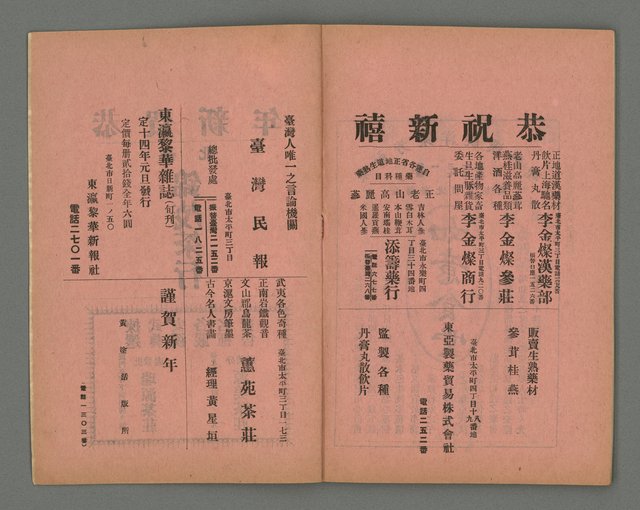 恭祝新禧
正地道漢藥材
飲片上海馳名
丹膏丸散
李金燦漢藥部
老山高麗蔘茸
燕桂滋養品類
洋酒各種
臺北市太平町三丁目電話九二〇番
李金燦參莊
各地產物家畜
生豆生豚雜貨
委託問屋
李金燦商行
自運各省正地道生熟
藥種科目
正老山高麗蔘
吉林人蔘
雪白木耳
本山鞭茸
安南瑞桂
暹羅官燕
米國人蔘
臺北市永樂町四
丁目三十四番地
添籌藥行
電話一六七七番
販賣生熟藥材
參茸桂燕
臺北市太平町四丁目十八九番地
東亞製藥貿易株式會社
電話二五二番
監製各種
丹膏丸散飲片
臺灣人唯一之言論機關
臺灣民報
臺北市太平町三丁目
總批發處
電話一八二五番
振替臺灣二一五二番
東瀛黎華雜誌(旬刊)
定十四年元旦發行
定價每冊貳拾錢全年六圓
臺北市日新町一ノ五〇
東瀛黎華新報社
電話二七〇一番
武夷各色奇種
正南岩鐵觀音
文山郡烏龍茶
京滬文房筆墨
古今名人書畫
臺北市太平町三丁目一七三
薰苑茶莊
經理 黃星垣
謹賀新年
黃塗活版所
電話一三〇三番